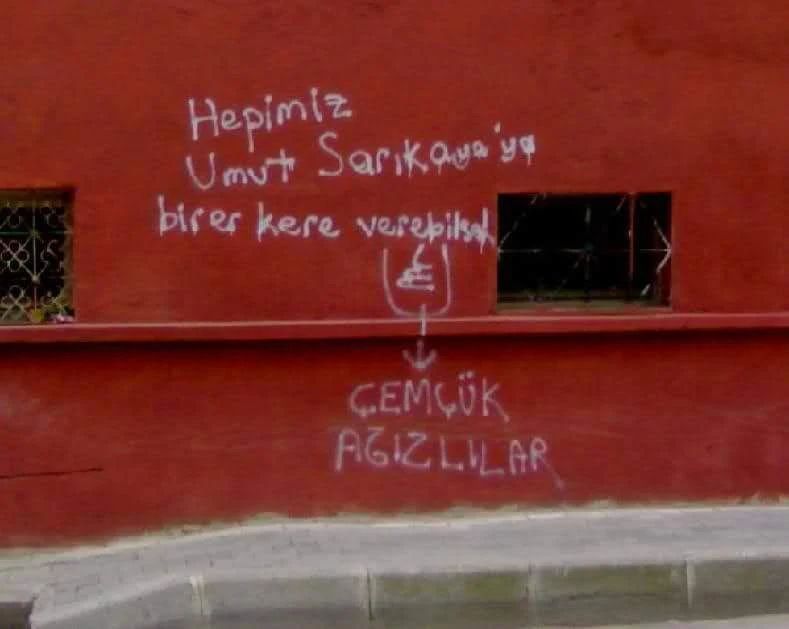 Hepimiz
Umut Sarıkaya'ya
birer kere verebilsek
ÇEMÇÜK
AĞIZLILAR